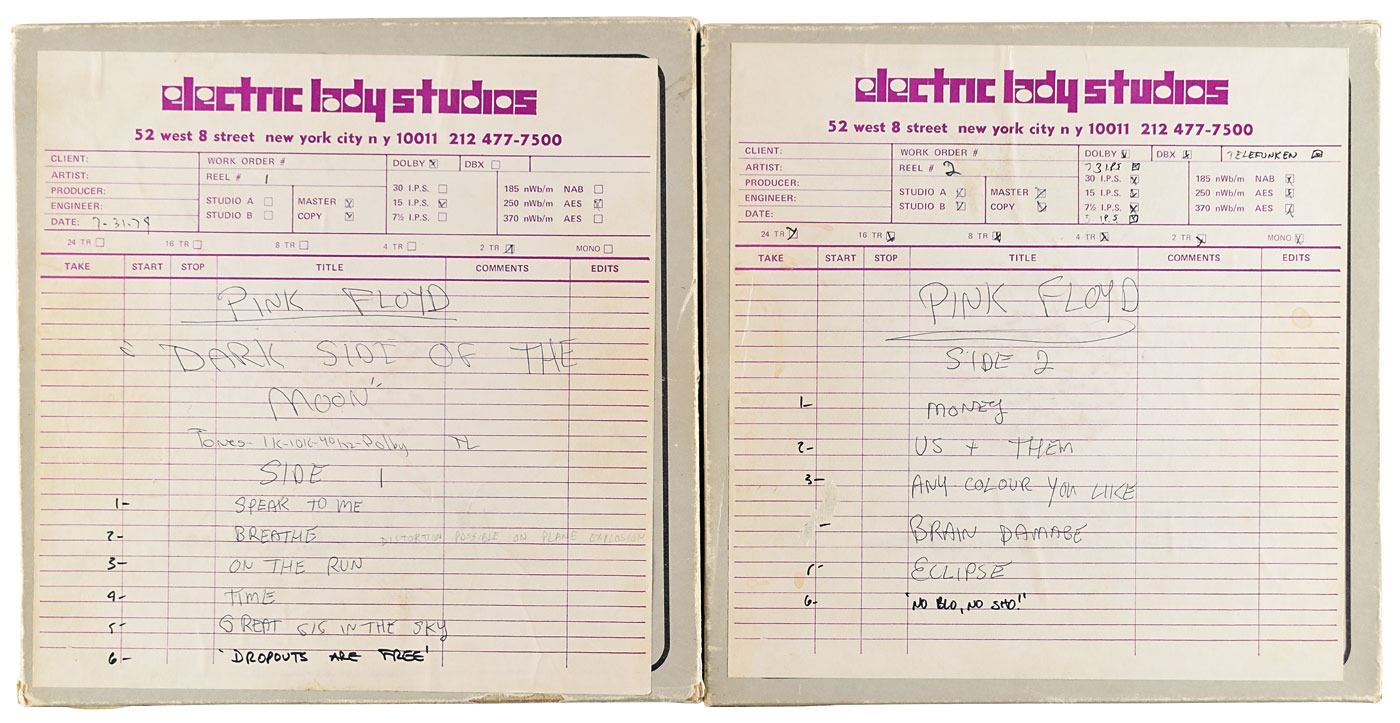 electric lady studios
52 west 8 street new york city n y 10011 212 477-7500
CLIENT:
ARTIST:
PRODUCER:
ENGINEER:
DATE: 7-31-79
WORK ORDER #
REEL # 1
STUDIO A
STUDIO B
MASTER
COPY
DOLBY
DBX
30 I.P.S.
15 I.P.S.
7½ I.P.S.
185 nWb/m NAB
250 nWb/m AES
370 nWb/m AES
24 TR 16 TR 8 TR 4 TR 2 TR MONO
TAKE START STOP TITLE COMMENTS EDITS
PINK FLOYD
"DARK SIDE OF THE
MOON"
Tones-1K-10K-40hz-Dolby
SIDE 1
1- SPEAK TO ME
2- BREATHE DISTORTION POSSIBLE ON PLANE EXPLOSION
3- ON THE RUN
4- TIME
5- GREAT GIG IN THE SKY
6- 'DROPOUTS ARE FREE'
electric lady studios
52 west 8 street new york city n y 10011 212 477-7500
CLIENT:
ARTIST:
PRODUCER:
ENGINEER:
DATE:
WORK ORDER #
REEL # 2
STUDIO A
STUDIO B
MASTER
COPY
DOLBY
DBX
TELEFUNKEN
30 I.P.S.
15 I.P.S.
7½ I.P.S.
185 nWb/m NAB
250 nWb/m AES
370 nWb/m AES
24 TR 16 TR 8 TR 4 TR 2 TR MONO
TAKE START STOP TITLE COMMENTS EDITS
PINK FLOYD
SIDE 2
1- MONEY
2- US + THEM
3- ANY COLOUR YOU LIKE
- BRAIN DAMAGE
5- ECLIPSE
6- 'NO BLO, NO SHO!'